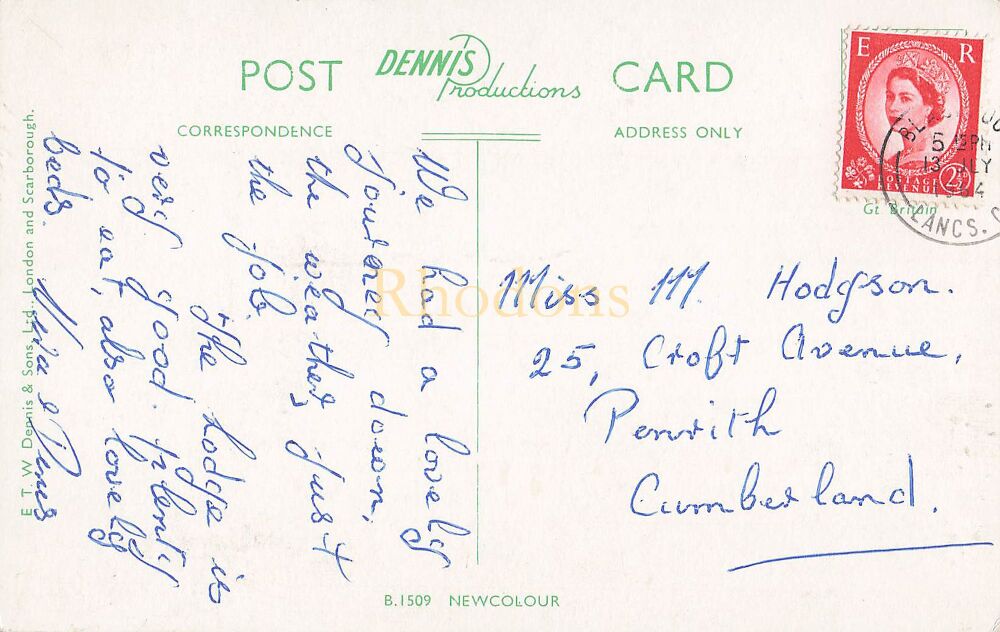 POST CARD
DENNIS
Productions
CORRESPONDENCE
ADDRESS ONLY
E R
POSTAGE
REVENUE
2½
5 15PM
13 LY
LANCS.
Gt Britain
We had a lovely
Journey down,
the weather just
the job.
The Lodge is
very good. plenty
to eat, also lovely
beds.
Miss M. Hodgson.
25, Croft Avenue,
Penrith
Cumberland.
Rhodons
E. T. W Dennis & Sons, Ltd., London and Scarborough.
B.1509 NEWCOLOUR